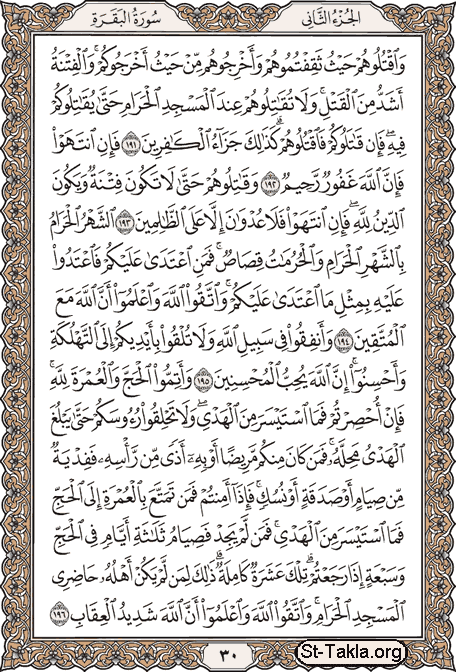 الجزء الثاني
سورة البقرة
وَٱقْتُلُوهُمْ حَيْثُ ثَقِفْتُمُوهُمْ وَأَخْرِجُوهُم مِّنْ حَيْثُ أَخْرَجُوكُمْ ۚ وَٱلْفِتْنَةُ
أَشَدُّ مِنَ ٱلْقَتْلِ ۚ وَلَا تُقَٰتِلُوهُمْ عِندَ ٱلْمَسْجِدِ ٱلْحَرَامِ حَتَّىٰ يُقَٰتِلُوكُمْ
فِيهِ ۖ فَإِن قَٰتَلُوكُمْ فَٱقْتُلُوهُمْ ۗ كَذَٰلِكَ جَزَآءُ ٱلْكَٰفِرِينَ ١٩١ فَإِنِ ٱنتَهَوْا۟
فَإِنَّ ٱللَّهَ غَفُورٌ رَّحِيمٌ ١٩٢ وَقَٰتِلُوهُمْ حَتَّىٰ لَا تَكُونَ فِتْنَةٌ وَيَكُونَ
ٱلدِّينُ لِلَّهِ ۖ فَإِنِ ٱنتَهَوْا۟ فَلَا عُدْوَٰنَ إِلَّا عَلَى ٱلظَّٰلِمِينَ ١٩٣ ٱلشَّهْرُ ٱلْحَرَامُ
بِٱلشَّهْرِ ٱلْحَرَامِ وَٱلْحُرُمَٰتُ قِصَاصٌ ۚ فَمَنِ ٱعْتَدَىٰ عَلَيْكُمْ فَٱعْتَدُوا۟
عَلَيْهِ بِمِثْلِ مَا ٱعْتَدَىٰ عَلَيْكُمْ ۚ وَٱتَّقُوا۟ ٱللَّهَ وَٱعْلَمُوٓا۟ أَنَّ ٱللَّهَ مَعَ
ٱلْمُتَّقِينَ ١٩٤ وَأَنفِقُوا۟ فِى سَبِيلِ ٱللَّهِ وَلَا تُلْقُوا۟ بِأَيْدِيكُمْ إِلَى ٱلتَّهْلُكَةِ ۛ
وَأَحْسِنُوٓا۟ ۛ إِنَّ ٱللَّهَ يُحِبُّ ٱلْمُحْسِنِينَ ١٩٥ وَأَتِمُّوا۟ ٱلْحَجَّ وَٱلْعُمْرَةَ لِلَّهِ ۚ
فَإِنْ أُحْصِرْتُمْ فَمَا ٱسْتَيْسَرَ مِنَ ٱلْهَدْىِ ۖ وَلَا تَحْلِقُوا۟ رُءُوسَكُمْ حَتَّىٰ يَبْلُغَ
ٱلْهَدْىُ مَحِلَّهُۥ ۚ فَمَن كَانَ مِنكُم مَّرِيضًا أَوْ بِهِۦٓ أَذًى مِّن رَّأْسِهِۦ فَفِدْيَةٌ
مِّن صِيَامٍ أَوْ صَدَقَةٍ أَوْ نُسُكٍ ۚ فَإِذَآ أَمِنتُمْ فَمَن تَمَتَّعَ بِٱلْعُمْرَةِ إِلَى ٱلْحَجِّ
فَمَا ٱسْتَيْسَرَ مِنَ ٱلْهَدْىِ ۚ فَمَن لَّمْ يَجِدْ فَصِيَامُ ثَلَٰثَةِ أَيَّامٍ فِى ٱلْحَجِّ
وَسَبْعَةٍ إِذَا رَجَعْتُمْ ۗ تِلْكَ عَشَرَةٌ كَامِلَةٌ ۗ ذَٰلِكَ لِمَن لَّمْ يَكُنْ أَهْلُهُۥ حَاضِرِى
ٱلْمَسْجِدِ ٱلْحَرَامِ ۚ وَٱتَّقُوا۟ ٱللَّهَ وَٱعْلَمُوٓا۟ أَنَّ ٱللَّهَ شَدِيدُ ٱلْعِقَابِ ١٩٦
٣٠
St-Takla.org